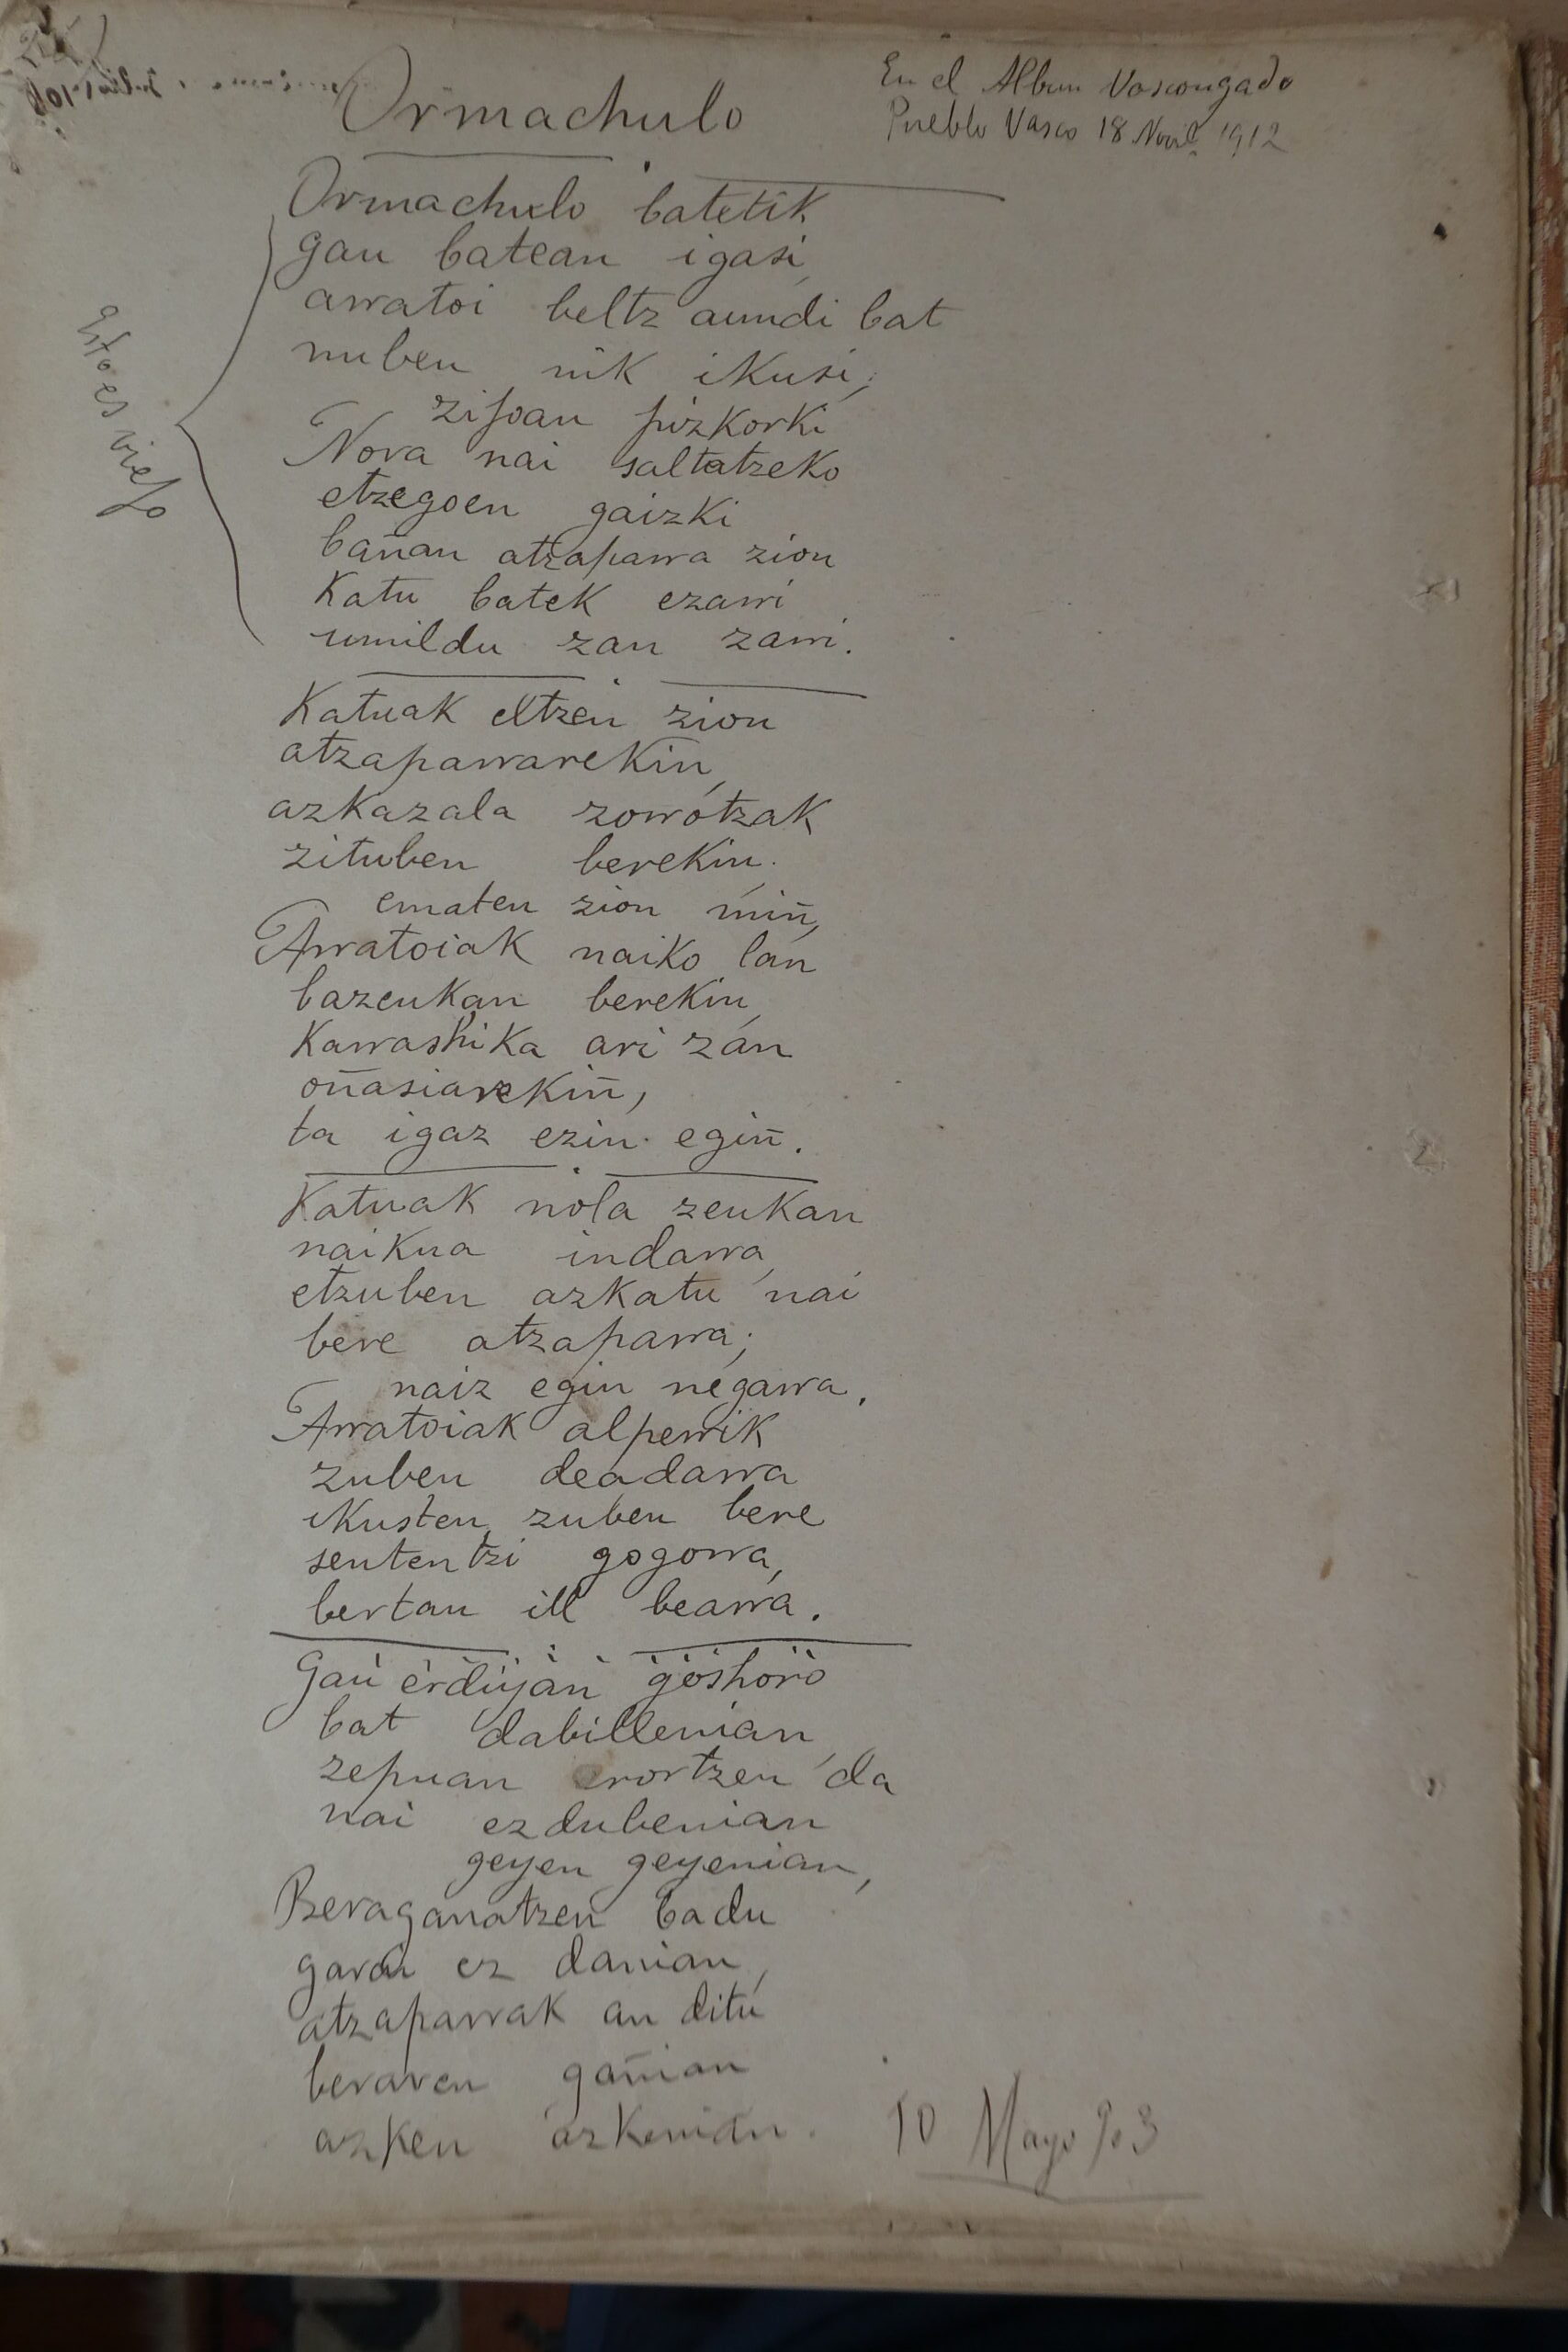 Ormachulo
En el Album Vascongado
Pueblo Vasco 18 Novbe 1912
Esto es viejo
Ormachulo batetik
gau batean igasi,
arratoi beltz aundi bat
nuben nik ikusi,
zijoan pizkorki
Nora nai saltatzeko
etzegoen gaizki
bañan atzaparra zion
Katu batek ezarri
umildu zan zarri.
Katuak eltzen zion
atzaparrarekin,
azkazala zorrotzak
zituben berekin.
ematen zion miñ,
Arratoiak naiko lan
bazeukan berekin,
Karrashika ari zan
oñasiarekiñ,
ta igaz ezin egiñ.
Katuak nola zeukan
naikua indarra,
etzuben azkatu nai
bere atzaparra;
naiz egin negarra,
Arratoiak alperrik
zuben deadarra
ikusten zuben bere
sententzi gogorra,
bertan ill bearra.
Gau erdiyan goshoro
bat dabillenian,
zepuan erortzen da
nai ezdubenian
geyen geyenian,
Beraganatzen badu
garai ez danian,
atzaparrak an ditu
beraren gañian
azken azkenian.
10 Mayo 903